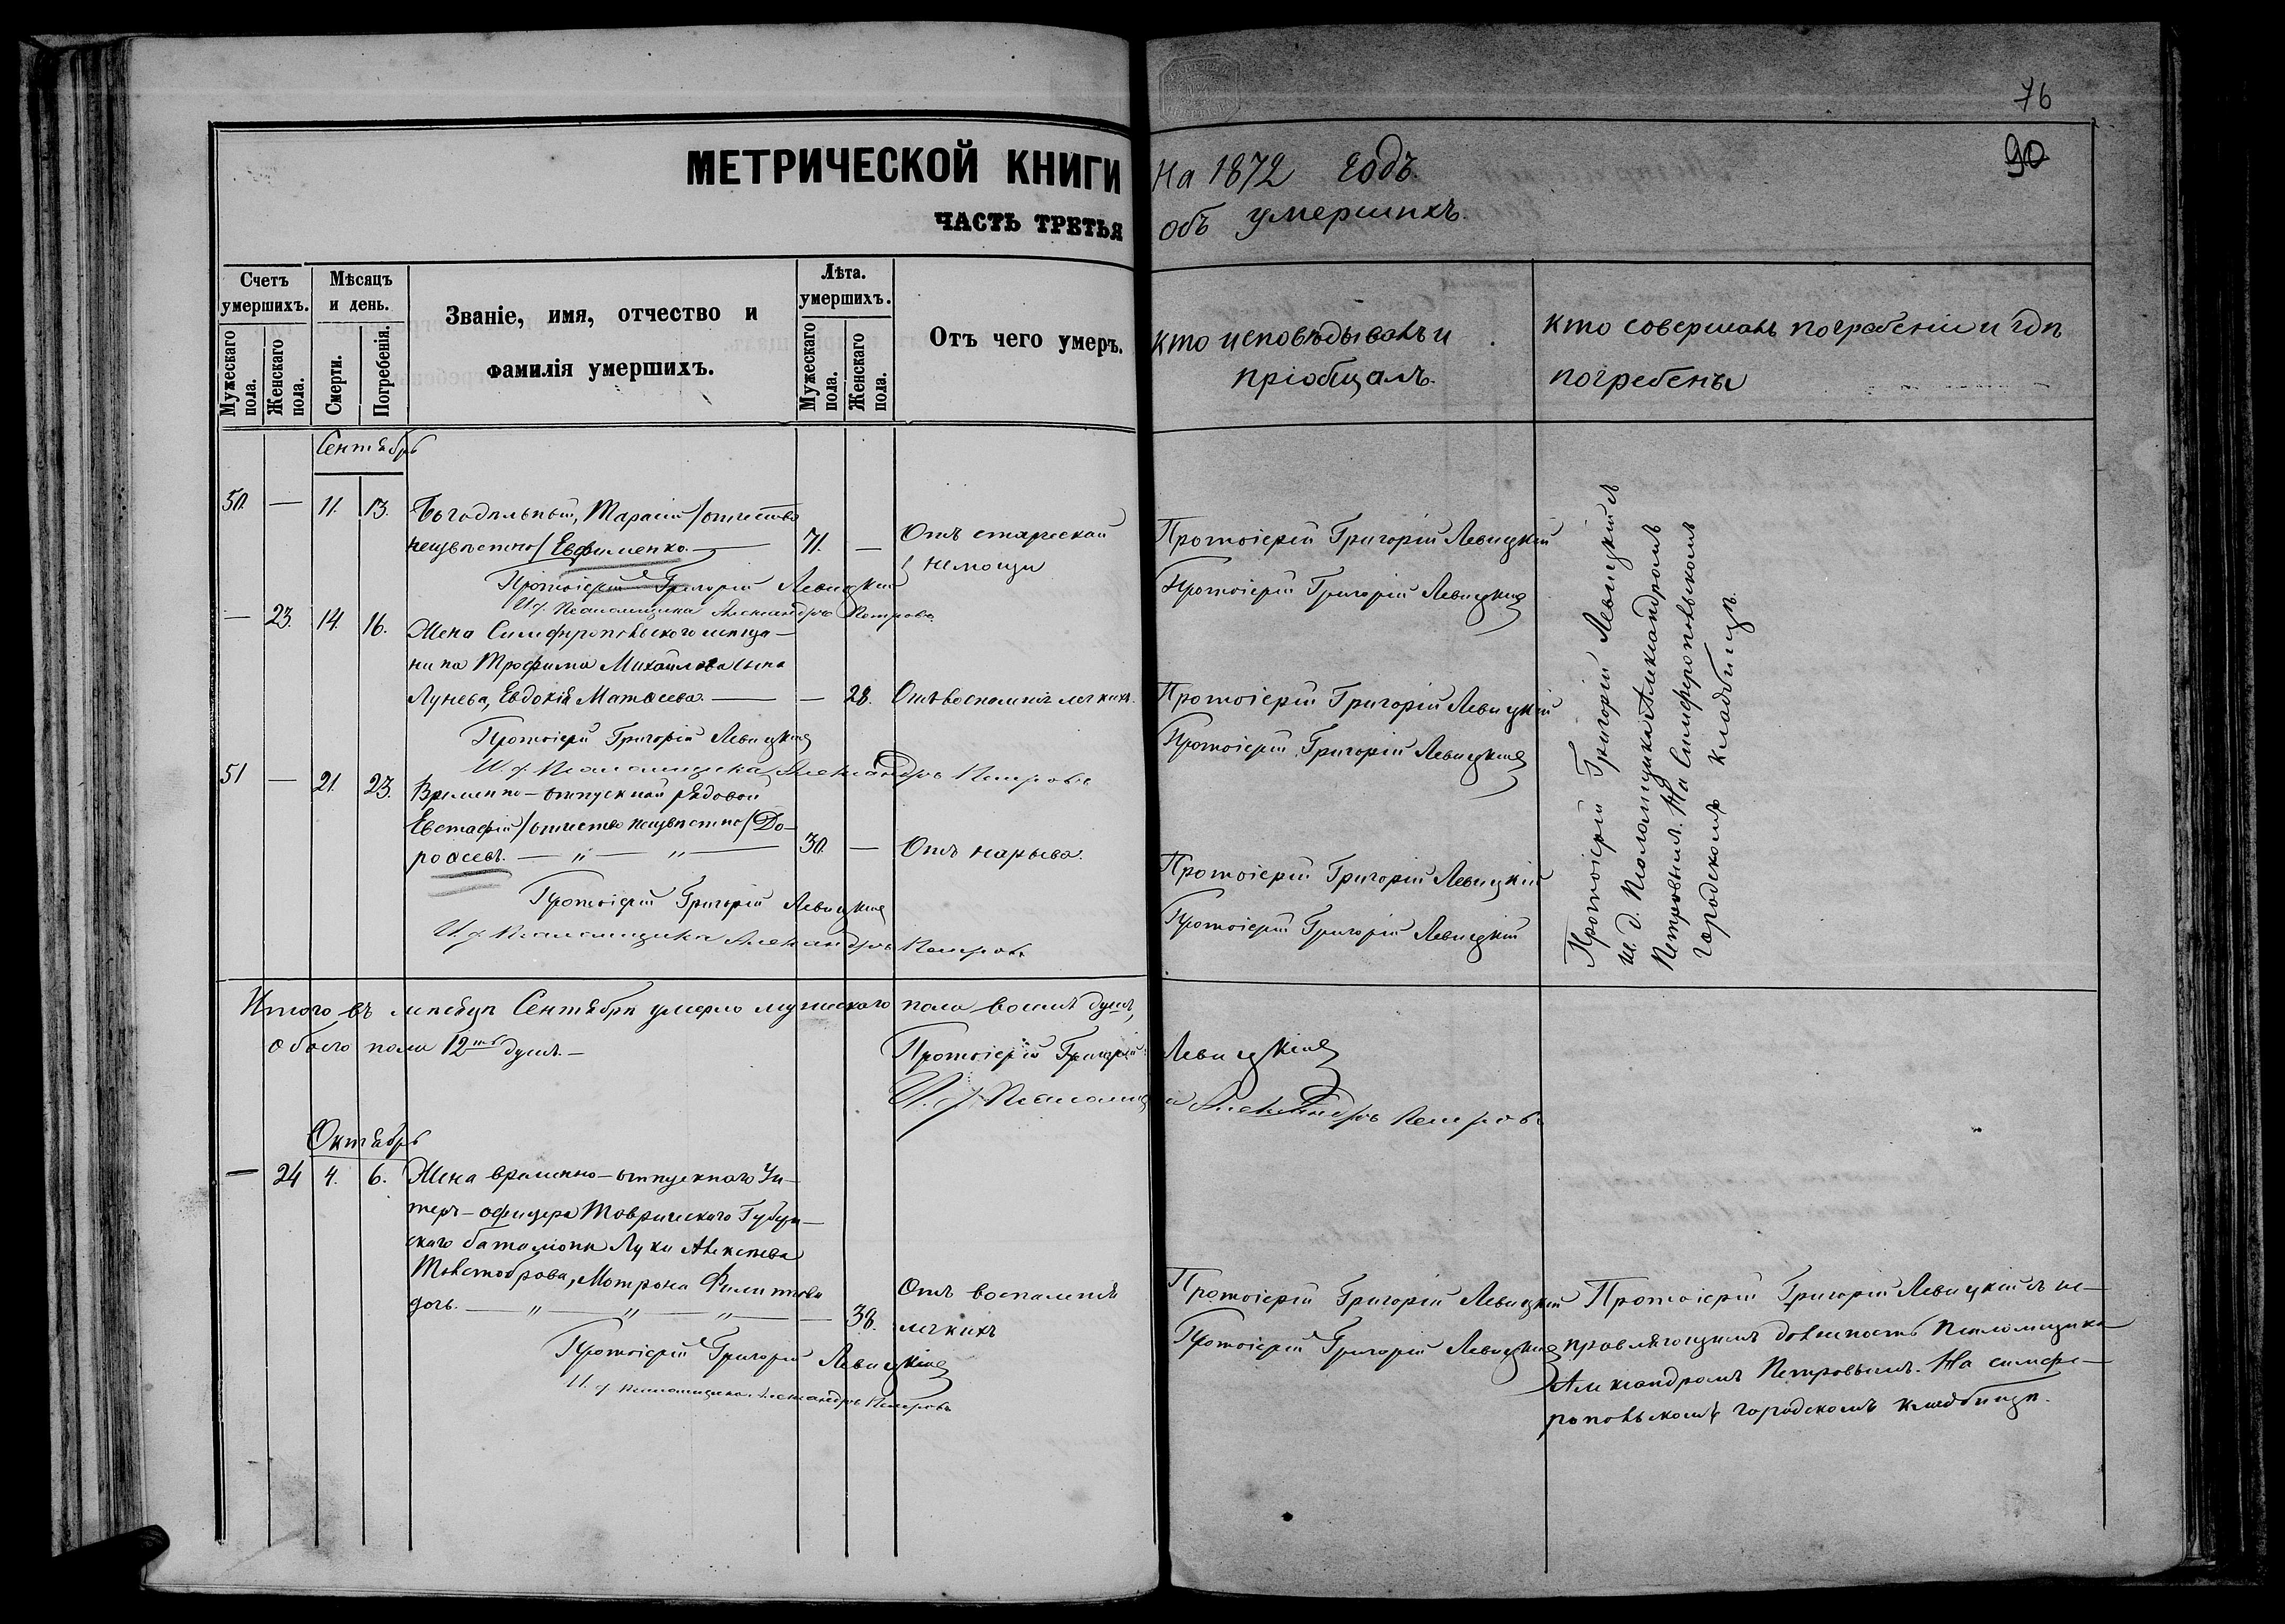 МЕТРИЧЕСКОЙ КНИГИ
ЧАСТЬ ТРЕТЬЯ
Счетъ умершихъ.
Мужескаго пола.
Женскаго пола.
Мѣсяцъ и день.
Смерти.
Погребенія.
Званіе, имя, отчество и
фамилія умершихъ.
Лѣта.
умершихъ.
Мужескаго пола.
Женскаго пола.
Отъ чего умеръ.
Сентябрь
50. — 11. 13. Богадѣльный, Тарасій /отчество
неизвѣстно/ Евфименко. — 71. —
Отъ старческой
немощи
Протоіерей Григорій Левицкій
И. д. Псаломщика Александръ Петровъ
— 23. 14. 16. Жена Симферопольского мѣща-
нина Трофима Михайлова сына
Лунева, Евдокія Матѳеева. — — 28. Отъ воспаленія легкихъ.
Протоіерей Григорій Левицкій
И. д. Псаломщика Александръ Петровъ
51 — 21. 23. Временно-отпускной рядовой
Евстафій /отчество неизвѣстно/ До-
роѳеевъ. — „ — „ — 30. — Отъ нарыва.
Протоіерей Григорій Левицкій
И. д. Псаломщика Александръ Петровъ
Итого въ мѣсяцѣ Сентябрѣ умерло мужескаго пола восемь душъ,
обоего пола 12ть душъ.—
Протоіерей Григорій Левицкій
И. д. Псаломщика Александръ Петровъ
Октябрь
— 24 4. 6. Жена временно-отпускного Ун-
теръ-офицера Таврическаго Губерн-
скаго баталіона Луки Алексѣева
Толстоброва, Матрона Филиппова
дочь. — „ — „ — „ — — 38.
Отъ воспаленія
легкихъ
Протоіерей Григорій Левицкій
И. д. псаломщика Александръ Петровъ
76
90
На 1872 годъ.
объ умершихъ.
Кто исповѣдывалъ и
пріобщалъ.
Кто совершалъ погребеніе и гдѣ
погребены
Протоіерей Григорій Левицкій
Протоіерей Григорій Левицкій
Протоіерей Григорій Левицкій
Протоіерей Григорій Левицкій
Протоіерей Григорій Левицкій
Протоіерей Григорій Левицкій
Протоіерей Григорій Левицкій съ
и. д. Псаломщика Александромъ
Петровымъ. На Симферопольскомъ
городскомъ кладбищѣ.
Протоіерей Григорій Левицкій
Протоіерей Григорій Левицкій
Протоіерей Григорій Левицкій съ ис-
правляющимъ должность Псаломщика
Александромъ Петровымъ. На симфе-
ропольскомъ городскомъ кладбищѣ.